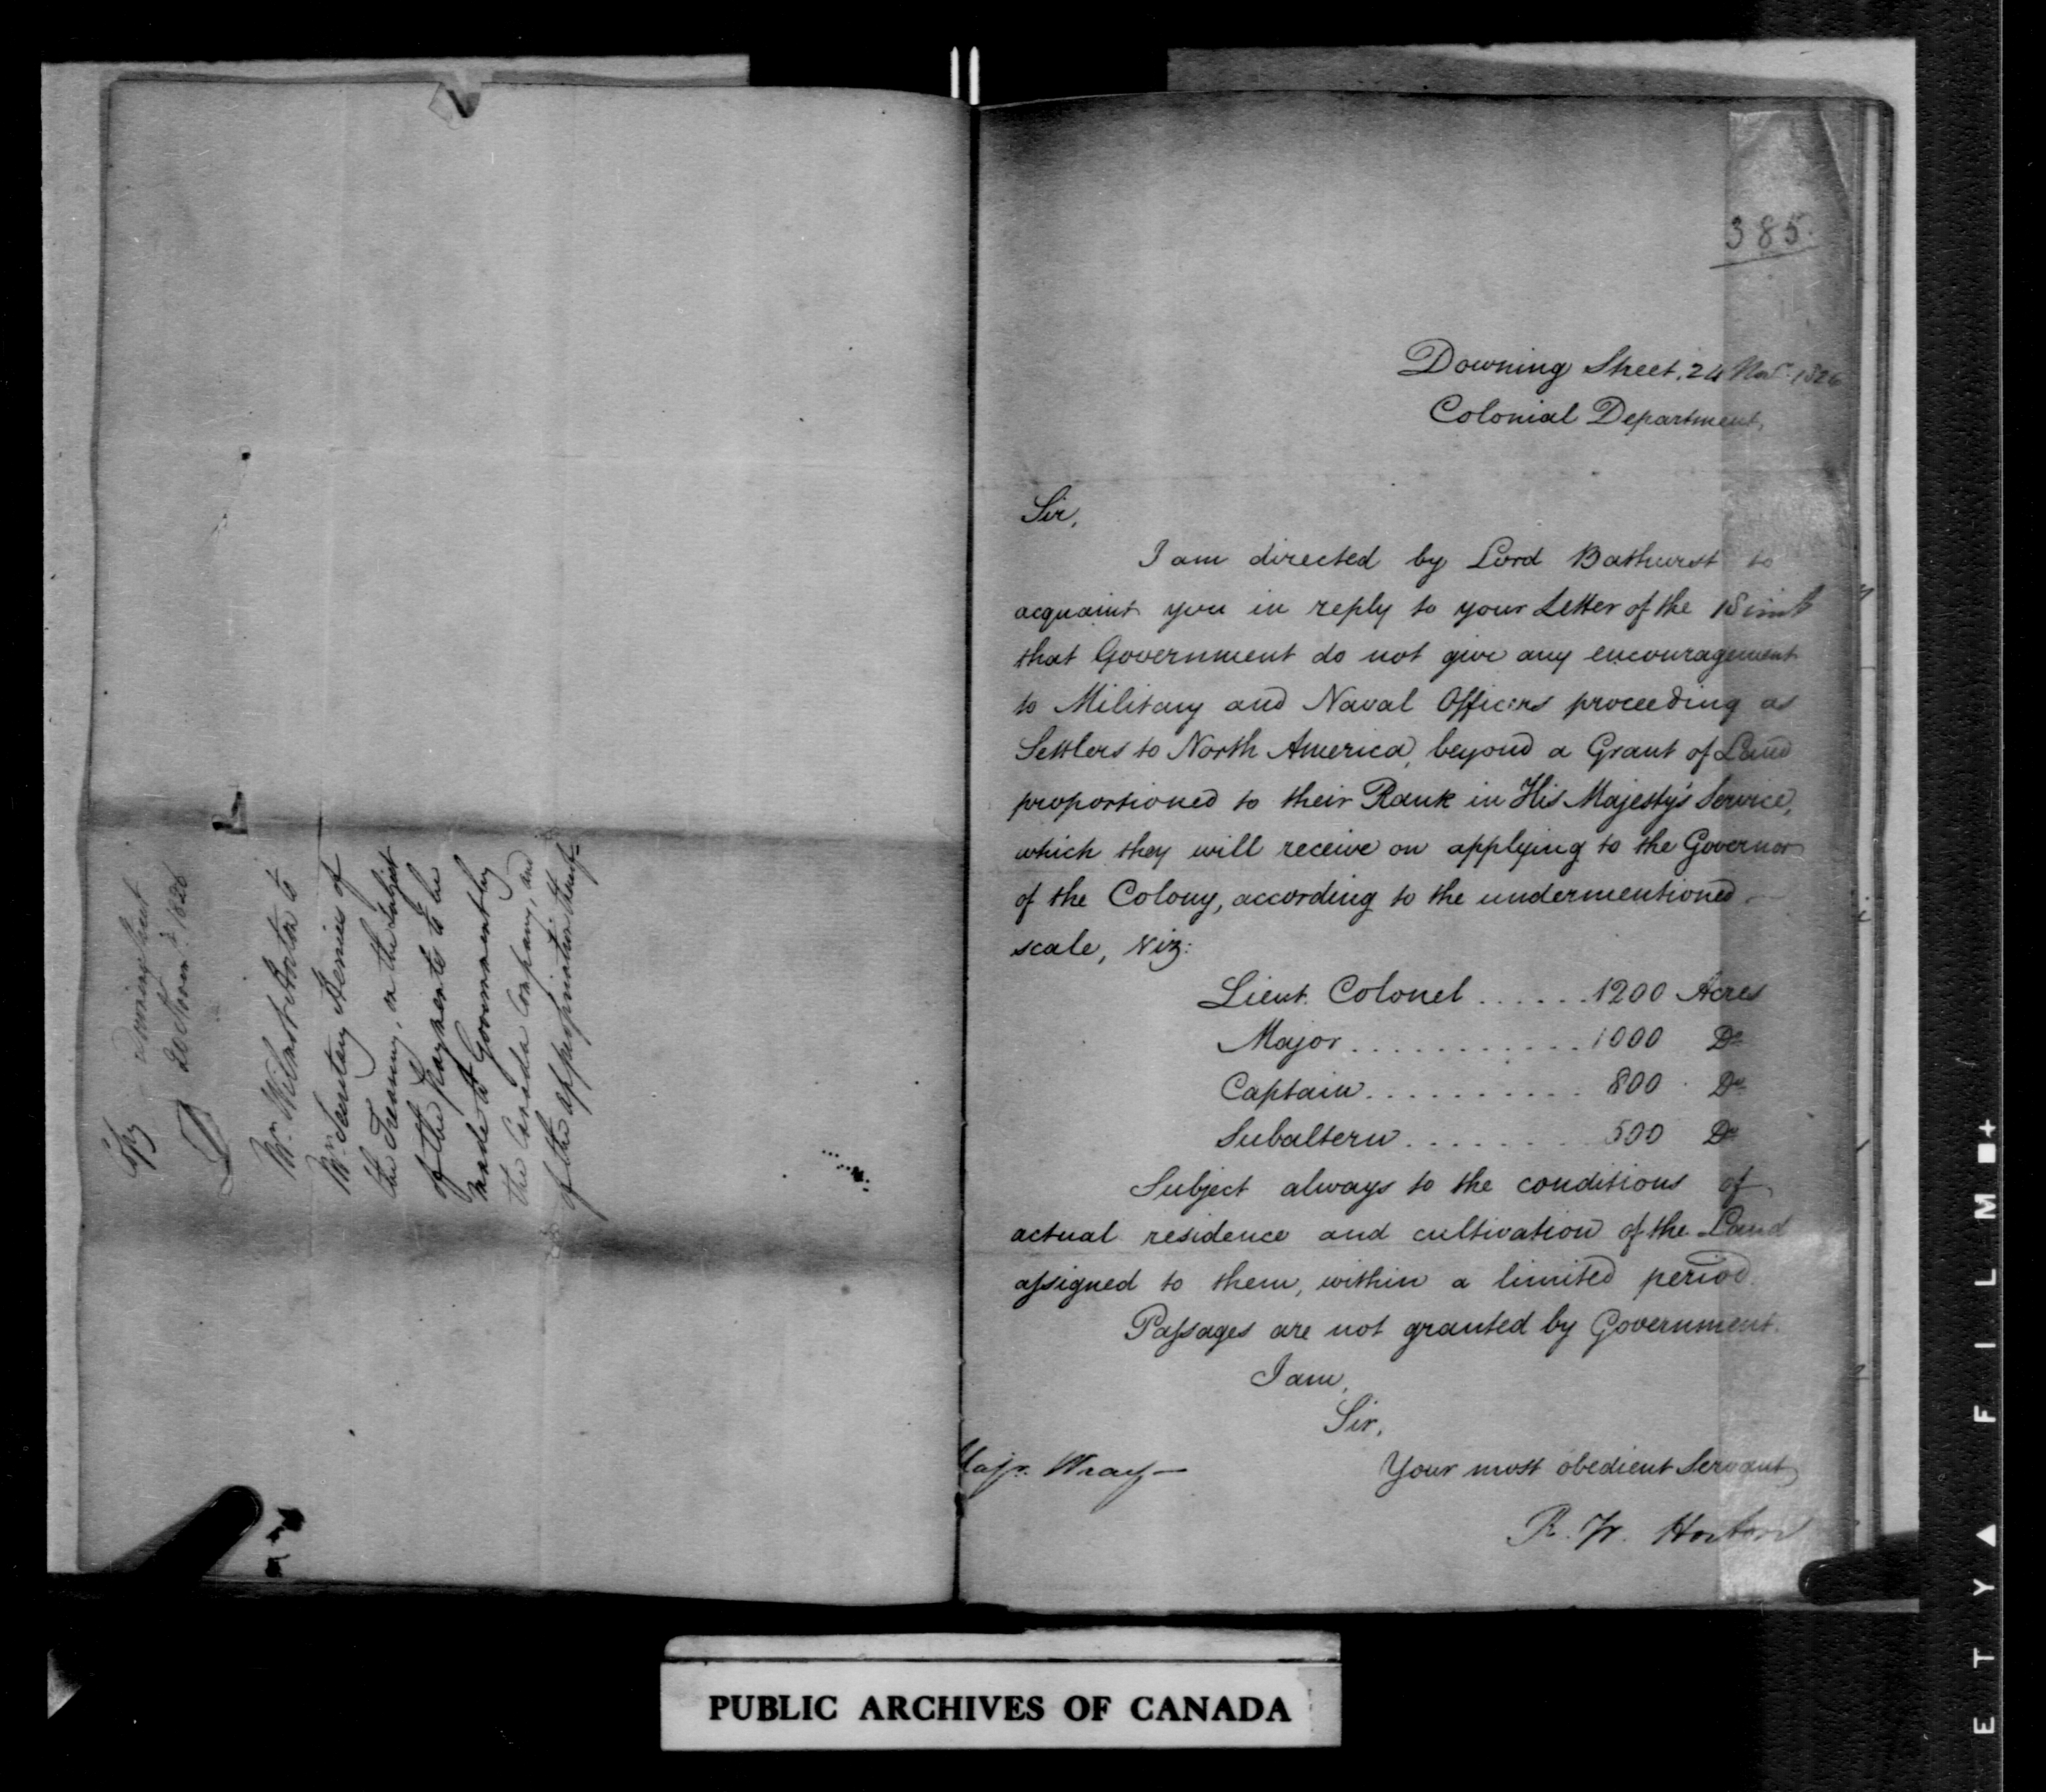 Copy
Downing Street
20 Novr. 1826
Mr. Wilmot Horton to
Mr. Secretary Herries of
the Treasury, on the subject
of the payments to be
made to Government by
the Canada Company, and
of the appropriation thereof
385.
Downing Street, 24 Novr. 1826
Colonial Department,
Sir,
I am directed by Lord Bathurst to
acquaint you in reply to your Letter of the 18 inst
that Government do not give any encouragement
to Military and Naval Officers proceeding as
Settlers to North America, beyond a Grant of Land
proportioned to their Rank in His Majesty's Service,
which they will receive on applying to the Governor
of the Colony, according to the undermentioned
scale, viz:
Lieut. Colonel ...... 1200 Acres
Major ............ 1000 Do
Captain ........... 800 Do
Subaltern ........ 500 Do
Subject always to the conditions of
actual residence and cultivation of the Land
assigned to them, within a limited period.
Passages are not granted by Government.
I am,
Sir,
Your most obedient Servant
Majr. Wray
R. W. Horton
PUBLIC ARCHIVES OF CANADA
ETY ▲ FILM ■+